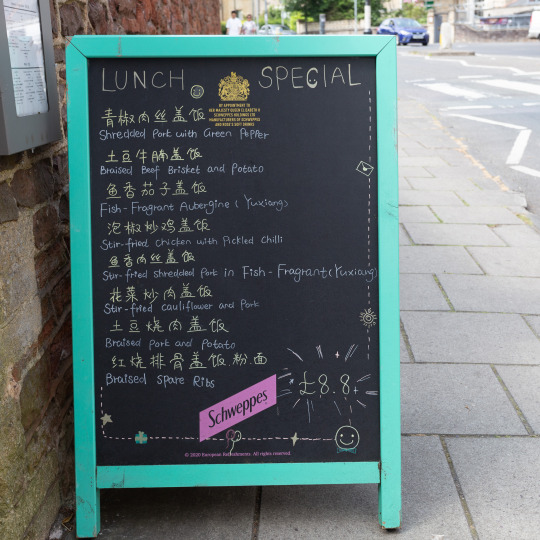 LUNCH SPECIAL
BY APPOINTMENT TO
HER MAJESTY QUEEN ELIZABETH II
SCHWEPPES HOLDINGS LTD
MANUFACTURERS OF SCHWEPPES
AND ROSE'S SOFT DRINKS
青椒肉丝盖饭
Shredded Pork with Green Pepper
土豆牛腩盖饭
Braised Beef Brisket and Potato
鱼香茄子盖饭
Fish-Fragrant Aubergine (Yuxiang)
泡椒炒鸡盖饭
Stir-fried chicken with Pickled Chilli
鱼香肉丝盖饭
Stir-fried shredded Pork in Fish-Fragrant (Yuxiang)
花菜炒肉盖饭
Stir-fried cauliflower and Pork
土豆烧肉盖饭
Braised Pork and Potato
红烧排骨盖饭.粉.面
Braised Spare Ribs
£8.8+
Schweppes
© 2020 European Refreshments. All rights reserved.